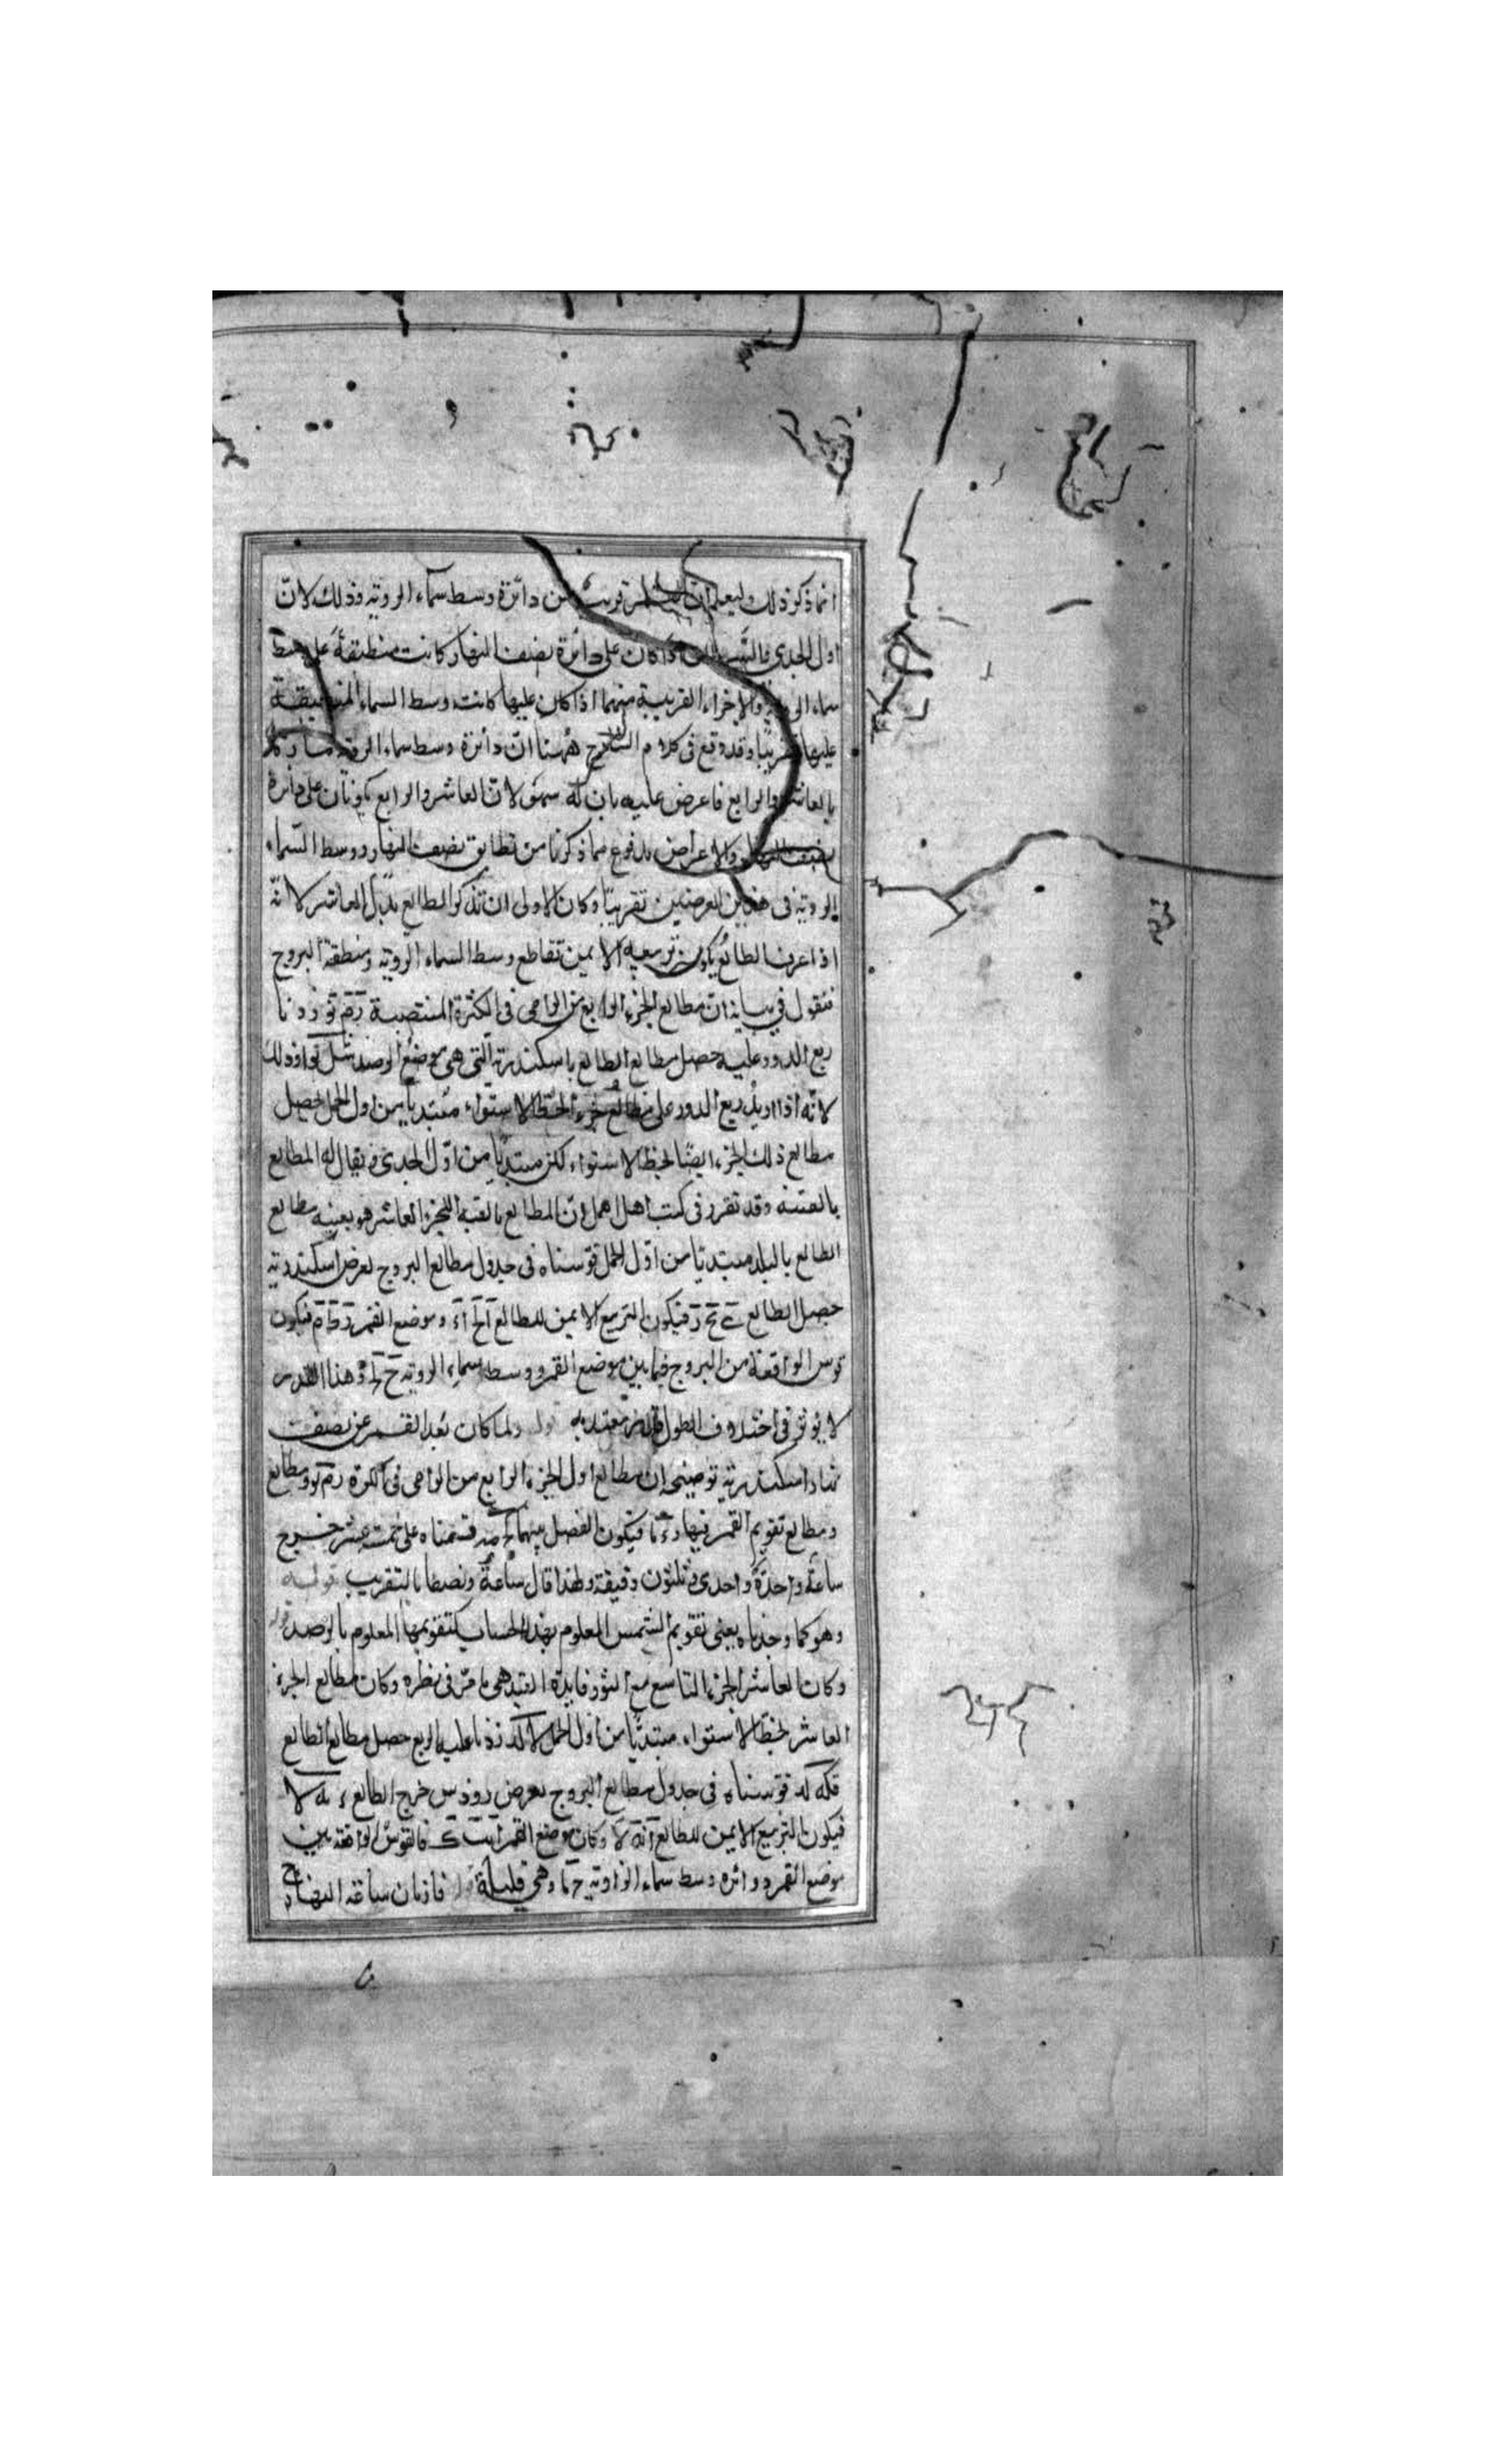 انما ذكر ذلك وليعلم ان القمر قريب من دائرة وسط سماء الروية وذلك لان
اول الجدى والسرطان اذا كان على دائرة نصف النهار كانت منطبقة على وسط
سماء الروية والاجزاء القريبة منهما اذا كان عليها كانت وسط السماء المنطبقة
عليها تقريبا وقد وقع فى كلام الشارح ههنا ان دائرة وسط سماء الروية
بالعاشر والرابع فاعرض عليه بان له سهو لان العاشر والرابع يكونان على دائرة
نصف النهار والاعراض مدفوع بما ذكرنا من تطابق نصف النهار ووسط السماء
الروية فى هذين العرضين تقريبا وكان الاولى ان تذكر الطالع بدل العاشر لانه
اذا عرف الطالع يكون تربيعه الايمن تقاطع وسط السماء الروية ومنطقة البروج
فنقول فى بيانه ان مطالع الجزء الرابع من الرامى فى الكثرة المنتصبة
ربع الدور عليه حصل مطالع الطالع باسكندرية التى هى موضع الرصد وذلك
لانه اذا زيد ربع الدور على مطالع جزء الخط الاستواء مبتديا من اول الحمل حصل
مطالع ذلك الجزء ايضا لخط الاستواء لكن مبتديا من اول الجدى ويقال له المطالع
بالقبة وقد تقرر فى كتب اهل العمل ان المطالع بالقبة للجزء العاشر هو بعينه مطالع
الطالع بالبلد مبتديا من اول الحمل قوسناه فى جدول مطالع البروج بعرض اسكندرية
حصل الطالع فيكون التربيع الايمن للطالع وموضع القمر فيكون
قوس الواقعة من البروج فيما بين موضع القمر ووسط سماء الروية وهذا القدر
لا يؤثر فى اختلاف الطول معتد به ولما كان بعد القمر عن نصف
نهار اسكندرية توضيحه ان مطالع اول الجزء الرابع من الرامى فى الكرة
ومطالع تقويم القمر فيها فيكون الفضل بينهما قسمناه على خمسة عشر خرج
ساعة واحدة واحدى وثلثون دقيقة ولهذا قال ساعة ونصفا بالتقريب قوله
وهو كما وجدناه يعنى تقويم الشمس المعلوم بهذا الحساب كتقويمها المعلوم بالرصد قوله
وكان العاشر الجزء التاسع مع الثور فايدة القيد هى ما مر فى نظره وكان مطالع الجزء
العاشر لخط الاستواء مبتديا من اول الحمل زدنا عليه الربع حصل مطالع الطالع
قوسناه فى جدول مطالع البروج بعرض رودس خرج الطالع
فيكون التربيع الايمن للطالع وكان موضع القمر فالقوس الواقعة بين
موضع القمر ودائرة وسط سماء الروية وهى قليلة فازمان ساعة النهار